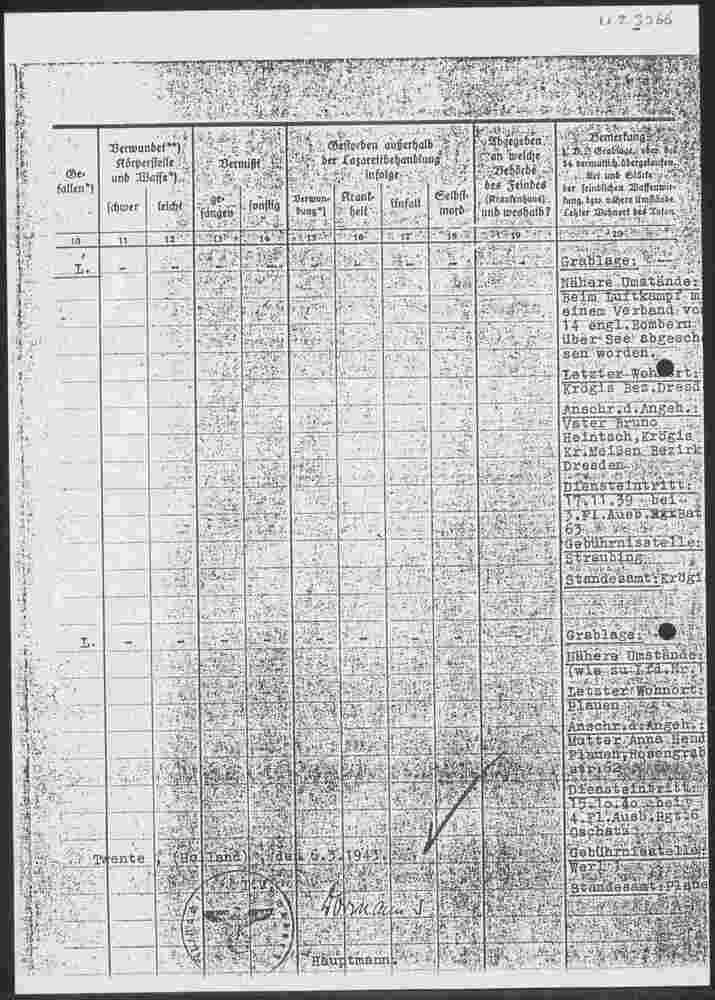 Ge-
fallen*)
Verwundet**)
Körperstelle
und Waffe*)
schwer
leicht
Vermißt
ge-
fangen
sonstig
Gestorben außerhalb
der Lazarettbehandlung
infolge
Verwun-
dung*)
Krank-
heit
Unfall
Selbst-
mord
Abgegeben
an welche
Behörde
des Feindes
(Krankenhaus)
und weshalb?
Bemerkung
z. B. Grablage, oder bei
14 vermutlich übergelaufen,
Art und Stärke
der feindlichen Waffenwir-
kung, bzw. nähere Umstände.
Letzter Wohnort des Toten
10 11 12 13 14 15 16 17 18 19 20
L. - - - - - - - - -
Grablage: -
Nähere Umstände:
Beim Luftkampf m
einem Verband vo
14 engl.Bombern
über See abgesch
sen worden.
Letzter Wohnort:
Krögis Bez.Dresd
Anschr.d.Angeh.:
Vater Bruno
Heintsch,Krögis
Kr.Meißen Bezirk
Dresden
Diensteintritt:
17.11.39 bei
3.Fl.Ausb. Bat
63
Gebührnisstelle:
Straubing
Standesamt:Krögi
L. - - - - - - - - -
Grablage: -
Nähere Umstände:
(wie zu Lfd.Nr.
Letzter Wohnort:
Plauen
Anschr.d.Angeh.:
Mutter Anna Hend
Plauen,Rosengrab
str.52
Diensteintritt:
15.10.40 bei
4.Fl.Ausb.Rgt.6
Oschatz
Gebührnisstelle:
Werl
Standesamt:Plaue
Twente , (Holland) , den 6.3.1943.
Hauptmann.